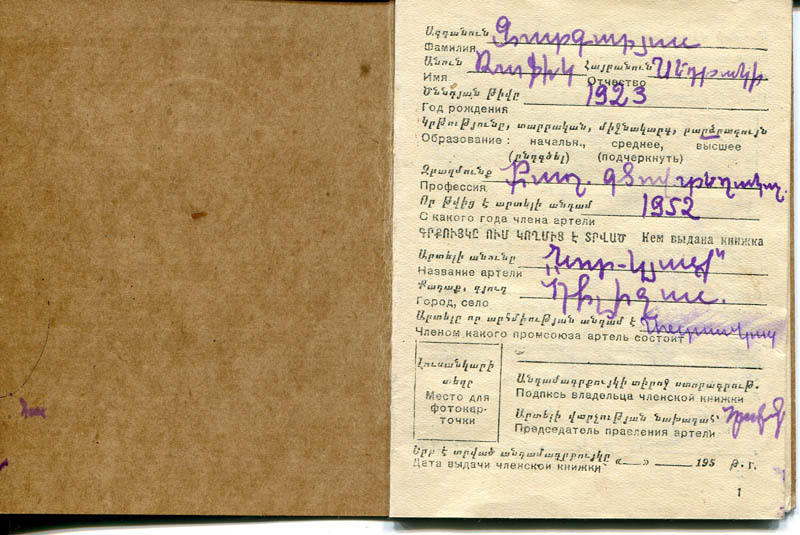 Ազգանուն
Фамилия
Անուն Ռաֆիկ Հայրանուն
Имя Отчество
Ծննդյան թիվը 1923
Год рождения
Կրթությունը, տարրական, միջնակարգ, բարձրագույն
Образование: начальн., среднее, высшее
(ընդգծել) (подчеркнуть)
Զբաղմունք
Профессия
Որ թվից է արտելի անդամ 1952
С какого года члена артели
ԳՐՔՈՒՅԿԸ ՈՒՄ ԿՈՂՄԻՑ Է ՏՐՎԱԾ Кем выдана книжка
Արտելի անունը
Название артели
Քաղաք, գյուղ Դիլիջան.
Город, село
Արտելը որ արհմիության անդամ է
Членом какого промсоюза артель состоит
Լուսանկարի
տեղը
Место для
фотокар-
точки
Անդամագրքույկի տիրոջ ստորագրութ.
Подпись владельца членской книжки
Արտելի վարչության նախագահ՝
Председатель праеления артели
Երբ է տրված անդամագրքույկը
Дата выдачи членской книжки «__» ____ 195 թ. г.
1